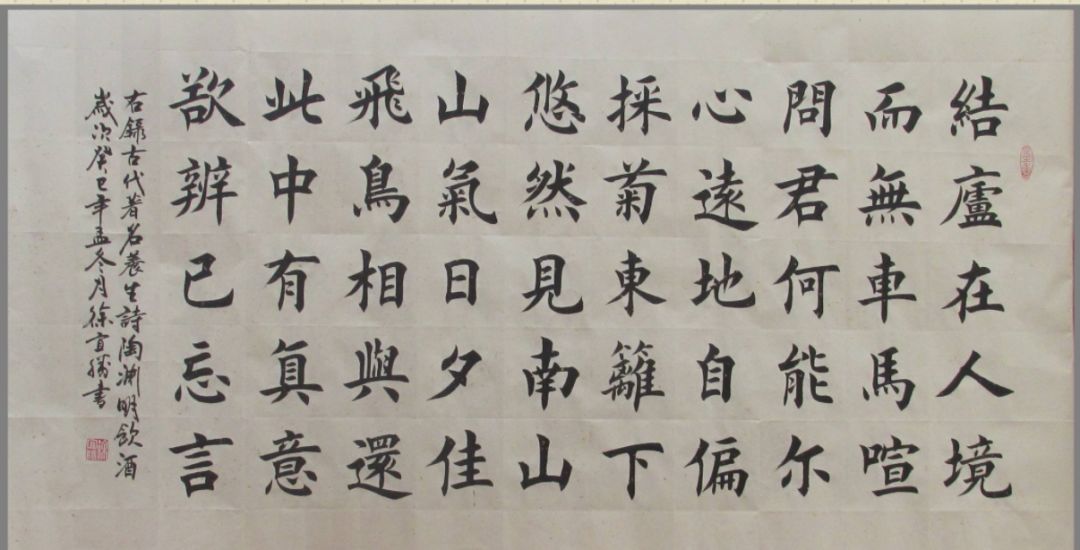 結廬在人境
而無車馬喧
問君何能尔
心遠地自偏
採菊東籬下
悠然見南山
山氣日夕佳
飛鳥相與還
此中有真意
欲辨已忘言
右錄古代著名養生詩陶淵明飲酒
歲次癸巳年孟冬月徐直勝書